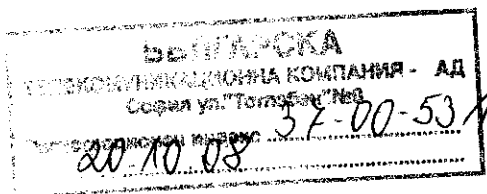 БЪЛГАРСКА
ТЕЛЕКОМУНИКАЦИОННА КОМПАНИЯ - АД
София ул."Тотлебен"№8
индекс 37-00-531
20.10.08